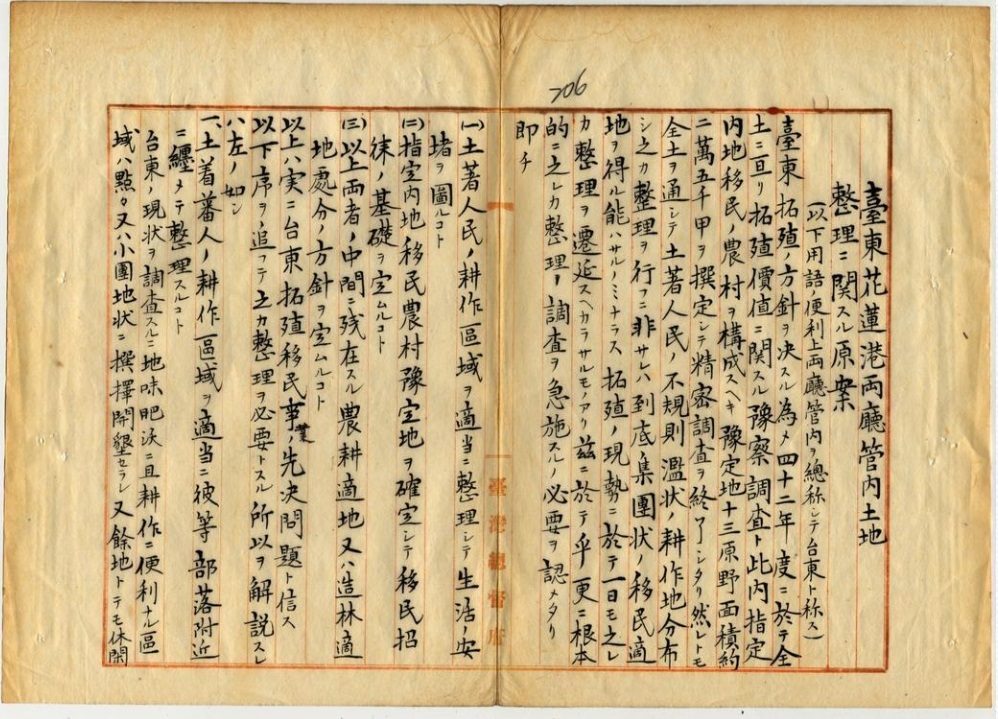 206
臺東花蓮港両廳管内土地
整理ニ関スル原案
(以下用語ノ便利上両廳管内ヲ總称シテ台東ト称ス)
臺東拓殖ノ方針ヲ決スル為メ四十二年度ニ於テ全
土ニ亘リ拓殖價値ニ関スル豫察調査ト此内指定
内地移民ノ農村ヲ構成スヘキ豫定地十三原野面積約
二萬五千甲ヲ撰定シテ精密調査ヲ終了シタリ然レトモ
全土ヲ通シテ土著人民ノ不規則濫状ノ耕作地分布
シ之カ整理ヲ行フニ非サレハ到底集團状ノ移民適
地ヲ得ル能ハサルノミナラス拓殖ノ現勢ニ於テ一日モ之レ
カ整理ヲ遷延スヘカラサルモノアリ茲ニ於テ乎更ニ根本
的ニ之レカ整理ノ調査ヲ急施スルノ必要ヲ認メタリ
即チ
(一)土著人民ノ耕作區域ヲ適当ニ整理シテ生活ノ安
堵ヲ圖ルコト
(二)指定内地移民農村豫定地ヲ確定シテ移民招
徠ノ基礎ヲ定ムルコト
(三)以上両者ノ中間ニ残在スル農耕適地又ハ造林適
地處分ノ方針ヲ定ムルコト
以上ハ実ニ台東拓殖移民事業ノ先決問題ト信ス
以下序ヲ追フテ之カ整理ヲ必要トスル所以ヲ解説スレ
ハ左ノ如シ
一、土着蕃人ノ耕作區域ヲ適当ニ彼等部落附近
ニ纒メテ整理スルコト
台東ノ現状ヲ調査スルニ地味肥沃ニ且耕作ニ便利ナル區
域ハ點々又ハ小團地状ニ撰擇開墾セラレ又餘地トテモ休閑
臺灣總督府